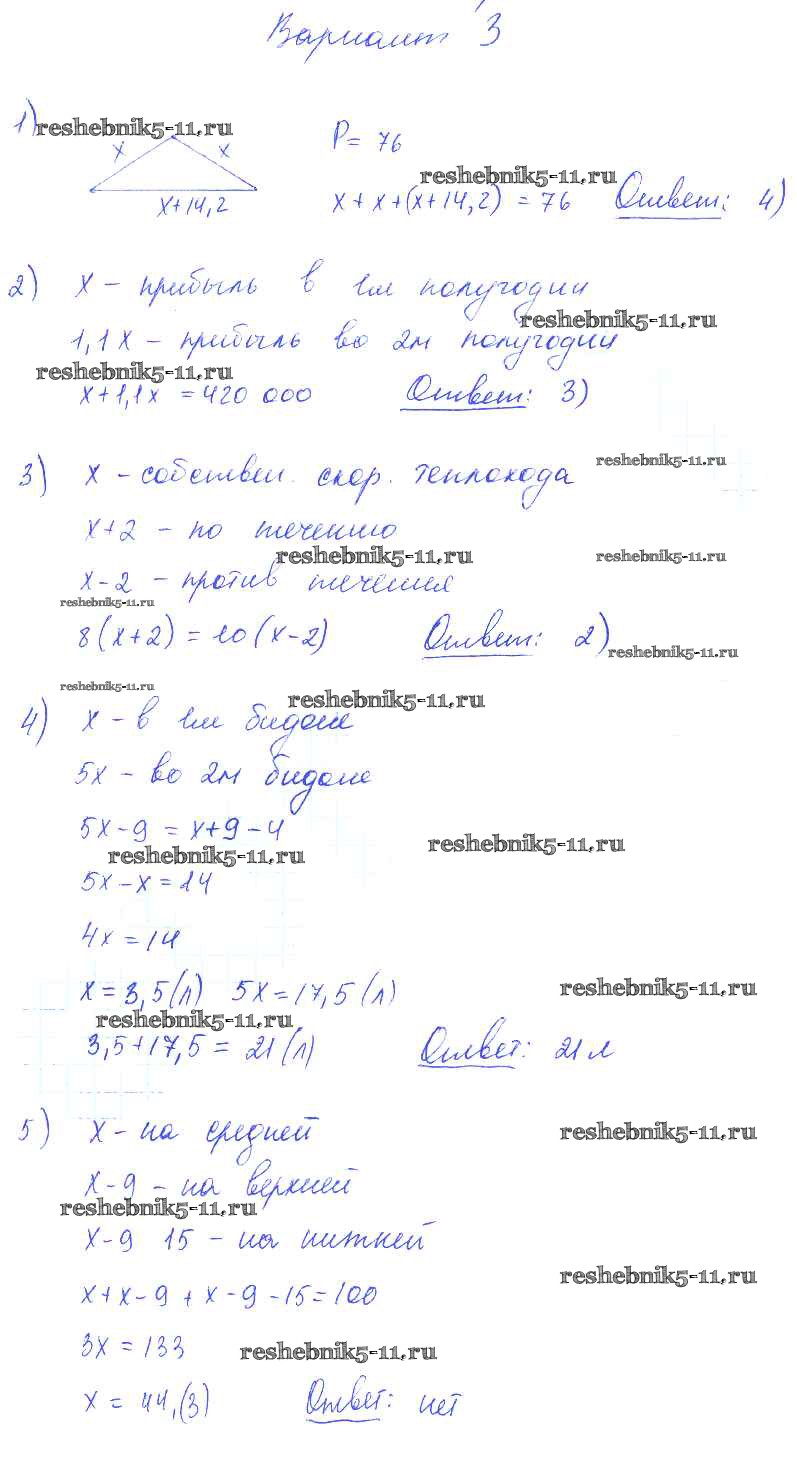 Вариант 3
1) reshebnik5-11.ru
P = 76
x x
reshebnik5-11.ru
x+14,2 x + x + (x+14,2) = 76 Ответ: 4)
2) x – прибыль в 1м полугодии
reshebnik5-11.ru
1,1x – прибыль во 2м полугодии
reshebnik5-11.ru
x+1,1x = 420 000 Ответ: 3)
reshebnik5-11.ru
3) x – собствен. скор. теплохода
x+2 – по течению
reshebnik5-11.ru reshebnik5-11.ru
x-2 – против течения
reshebnik5-11.ru
8(x+2) = 10(x-2) Ответ: 2)
reshebnik5-11.ru
reshebnik5-11.ru reshebnik5-11.ru
4) x – в 1м бидоне
5x – во 2м бидоне
5x-9 = x+9-4
reshebnik5-11.ru reshebnik5-11.ru
5x-x = 14
4x = 14
x = 3,5(л) 5x = 17,5(л)
reshebnik5-11.ru
reshebnik5-11.ru
3,5+17,5 = 21(л) Ответ: 21 л
5) x – на средней
reshebnik5-11.ru
x-9 – на верхней
reshebnik5-11.ru
x-9 15 – на нижней
reshebnik5-11.ru
x+x-9+x-9-15=100
3x = 133
reshebnik5-11.ru
x = 44,(3) Ответ: нет